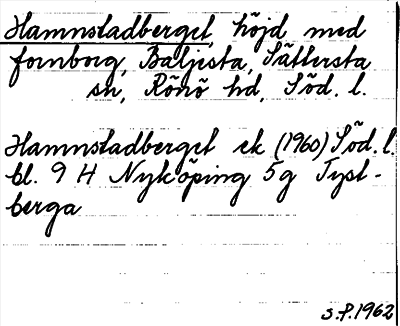 Hamnstadberget, höjd med
fornborg, Baljesta, Sättersta
sn, Rönö hd, Söd. l.
Hamnstadberget ek (1960) Söd. l.
bl. 9 H Nyköping 5g Tyst-
berga
S.P. 1962